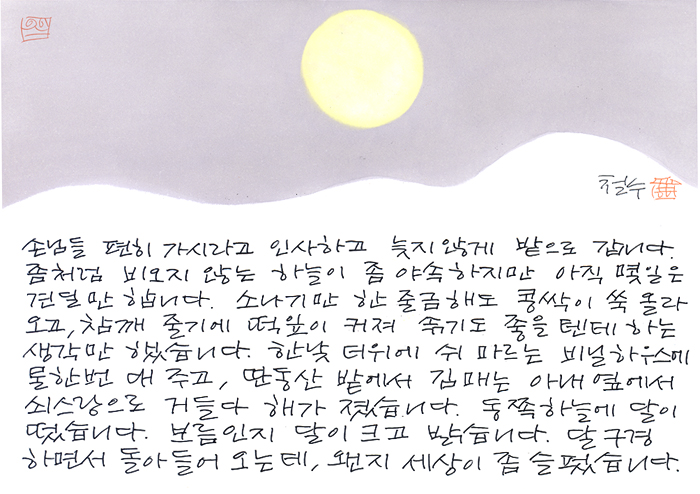 철수
손님들 편히 가시라고 인사하고 늦지않게 밭으로 갑니다.
좀처럼 비오지 않는 하늘이 좀 야속하지만 아직 몇일은
견딜만 합니다. 소나기만 한 줄금해도 콩싹이 쑥 올라
오고, 참깨 줄기에 떡잎이 커져 솎기도 좋을텐데 하는
생각만 했습니다. 한낮 더위에 쉬 마르는 비닐하우스에
물한번 대 주고, 딴동산 밭에서 김매는 아내 옆에서
쇠스랑으로 거들다 해가 졌습니다. 동쪽하늘에 달이
떴습니다. 보름인지 달이 크고 밝습니다. 달 구경
하면서 돌아들어 오는데, 왠지 세상이 좀 슬펐습니다.